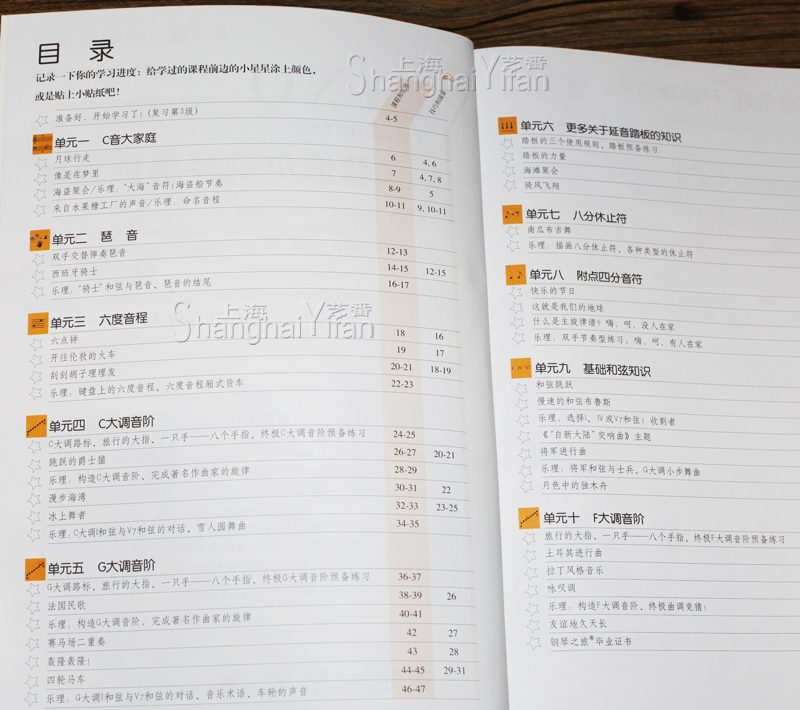 目 录
记录一下你的学习进度：给学过的课程前边的小星星涂上颜色，
或是贴上小贴纸吧！
课程和乐理 技巧和表演
准备好，开始学习了！(复习第3级) 4-5
单元一 C音大家庭
月球行走 6 4, 6
像是在梦里 7 4, 7, 8
海盗聚会/乐理："大海"音符!海盗船节奏 8-9 5
来自水果糖工厂的声音/乐理：命名音程 10-11 9, 10-11
单元二 琶 音
双手交替弹奏琶音 12-13
西班牙骑士 14-15 12-15
乐理："骑士"和弦与琶音、琶音的结尾 16-17
单元三 六度音程
六点钟 18 16
开往伦敦的火车 19 17
刮刮胡子理理发 20-21 18-19
乐理：键盘上的六度音程、六度音程厢式货车 22-23
单元四 C大调音阶
C大调路标、旅行的大指、一只手——八个手指、终极C大调音阶预备练习 24-25
跳跃的爵士猫 26-27 20-21
乐理：构造C大调音阶、完成著名作曲家的旋律 28-29
漫步海湾 30-31 22
冰上舞者 32-33 23-25
乐理：C大调I和弦与V7和弦的对话、雪人圆舞曲 34-35
单元五 G大调音阶
G大调路标、旅行的大指、一只手——八个手指、终极G大调音阶预备练习 36-37
法国民歌 38-39 26
乐理：构造G大调音阶，完成著名作曲家的旋律 40-41
赛马场二重奏 42 27
轰隆轰隆! 43 28
四轮马车 44-45 29-31
乐理：G大调I和弦与V7和弦的对话、音乐术语、车轮的声音 46-47
单元六 更多关于延音踏板的知识
踏板的三个使用规则、踏板预备练习
踏板的力量
海滩聚会
骑风飞翔
单元七 八分休止符
南瓜布吉舞
乐理：描画八分休止符、各种类型的休止符
单元八 附点四分音符
快乐的节日
这就是我们的地球
什么是主旋律谱? 嗨，呵，没人在家
乐理：双手节奏型练习；嗨，呵，有人在家
单元九 基础和弦知识
和弦跳跃
慢速的和弦布鲁斯
乐理：选择I、IV或V7和弦；收割者
《"自新大陆"交响曲》主题
将军进行曲
乐理：将军和弦与士兵、G大调小步舞曲
月色中的独木舟
单元十 F大调音阶
旅行的大指、一只手——八个手指、终极F大调音阶预备练习
土耳其进行曲
拉丁风格音乐
咏叹调
乐理：构造F大调音阶、终极曲调竞猜!
友谊地久天长
钢琴之旅®毕业证书
上海 艺番
Shanghai Yifan
上海 艺番
Shanghai Yifan